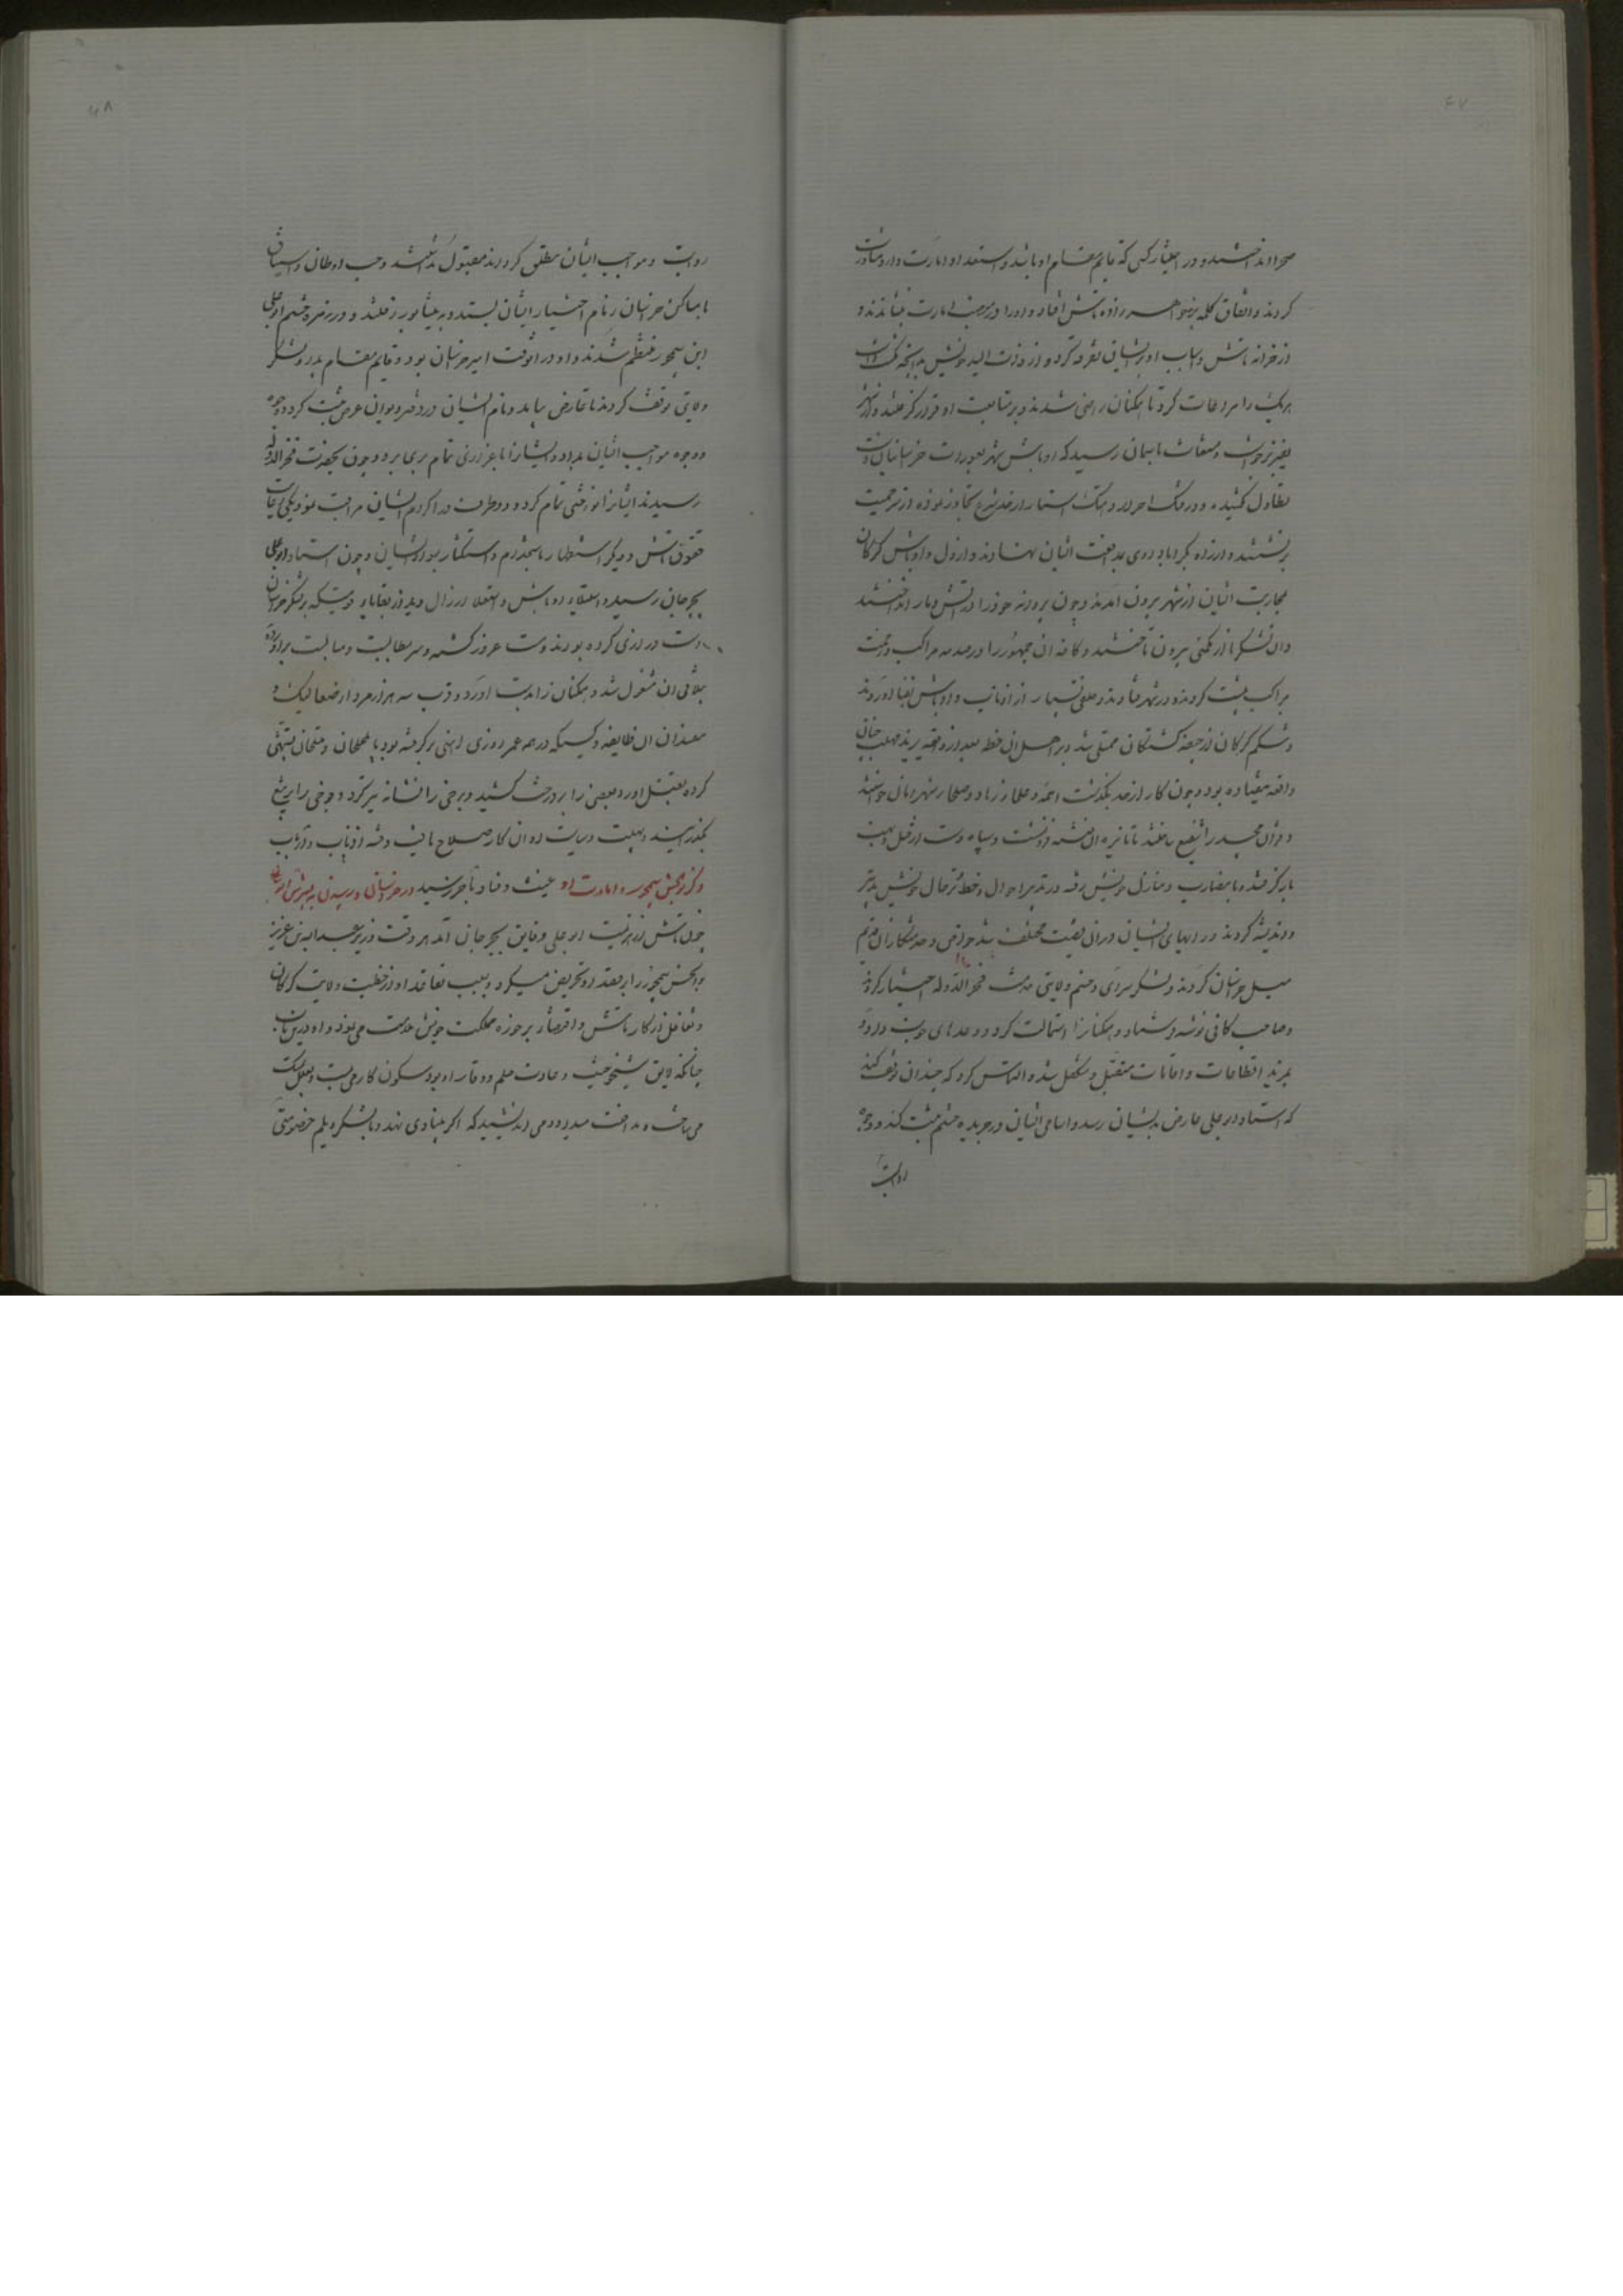 ۴۷
صحرا انداختند و در اختیار کسی که قایم مقام او باشد و استعداد امارت دارد مشاورت
کردند و اتفاق کلمه بر خواهرزاده تاش افتاد و او را در منصب امارت بنشاندند و
از خزانه تاش و اسباب او بر ایشان تفرقه کرد و از ذات الید خویش بدانچه
هریک را مراعات کرد تا همگنان راضی شدند و بر متابعت او قرار گرفتند و از شهر
نفیر برخاست و مستغاث بایشان رسید که اوباش شهر بعورات خراسانیان دست
تطاول کشیده و در هتک احرار و هتک استار از حد شرع تجاوز نموده از سر حمیت
برنشستند و از راه بکراباد روی بمدافعت ایشان نهادند و ارذال و اوباش گرگان
بمحاربت ایشان از شهر بیرون آمدند و چون پروانه خود را در آتش دمار انداختند
و آن لشکر از مکمنی بیرون تاختند و کافه آن جمهور را در صدمه مراکب و زحمت
مراکب پست کردند و در شهر افتادند و خلقی بسیار از اذناب و اوباش بفنا آوردند
و شکم گرگان از جیفه کشتگان ممتلی شد و بر اهل آن خطه بعد از وقعه یزید مهلب چنان
واقعه نیفتاده بود و چون کار از حد بگذشت ائمه و علما و زهاد و صلحاء شهر امان خواستند
و قرآن مجید را شفیع ساختند تا نایره آن فتنه فرونشست و سپاه دست از قتل و نهب
بازگرفتند و با مضارب و منازل خویش رفته در تدبیر احوال و خط ترحال خویش
و اندیشه کردند و رایهای ایشان در آن قضیت مختلف شد خواص و خدمتکاران قدیم
میل خراسان کردند و لشکر سرای و حشم ولایتی خدمت فخر الدوله اختیار کردند
و صاحب کافی نوشته فرستاد و همگنانرا استمالت کرد و وعدهای خوب داد و
بمزید اقطاعات و اقامات متقبل و متکفل شد و التماس کرد که چندان توقف کنند
که استاد ابو علی عارض بایشان رسد و اسامی ایشان در جریده حشم مثبت کند و وجوه
رواتب
۴۸
رواتب و مواجب ایشان مطلق گرداند مقبول نداشتند و حب اوطان و اشتیاق
با مساکن خراسان زمام اختیار ایشان بستد و به نیشابور رفتند و در زمره حشم ابو علی
ابن سیمجور منتظم شدند و او در آنوقت امیر خراسان بود و قایم مقام پدر و لشکر
ولایتی توقف کردند تا عارض بیامد و نام ایشان در دفتر دیوان عرض مثبت کرد و وجوه
و وجوه مواجب ایشان بداد و ایشانرا باعزازی تمام بری برد و چون بحضرت فخر الدوله
رسیدند ایشانرا نواختی تمام کرد و دو طرف در اکرام ایشان مراقبت نمود یکی رعایت
حقوق تاش و دیگر استظهار باستخدام و استکثار بسواد ایشان و چون استاد ابو علی
بجرجان رسید و استیلاء اوباش و استعلاء ارذال دید و از بقایاء قومی که بر لشکر خراسان
دست درازی کرده بودند دست عرض کشته و سر مطالبت و معاتبت برآورده
بتلافی آن مشغول شد و همگنان را بدست آورد و قرب سه هزار مرد از صعالیک و
مفسدان آن طایفه و کسی که در همه عمر روزی آهنی برگرفته بود یا بمحلتان و متحلیان متهم
کرده بقتل آورد و بعضی را بر درخت کشید و برخی را نشانه تیر کرد و جوخی را بر تیغ
بگذرانید و بهیبت و سیاست او آن کار صلاح یافت و فتنه اذناب و ارباب
عیث و فساد بآخر رسید ذکر ابو الحسن سیمجور و امارت او در خراسان و رسیدن به پسرش ابو علی
چون تاش از هزیمت ابو علی و فایق بجرجان آمد هر وقت وزیر عبد الله بن عزیز
ابو الحسن سیمجور را بر قصد او تحریض میکرد و بسبب تقاعد او از خطبت ولایت گرگان
و تغافل از کار تاش و اقتصار بر حوزه مملکت خویش ملامت می‌نمود و او درین باب
چنانکه لایق شیخوخیت و عادت حلم و وقار او بود سکون کار می‌بست و بعلل تمسک
می‌ساخت و مدافعت میداد و می اندیشید که اگر بنیادی نهد و با لشکر دیلم خصومتی